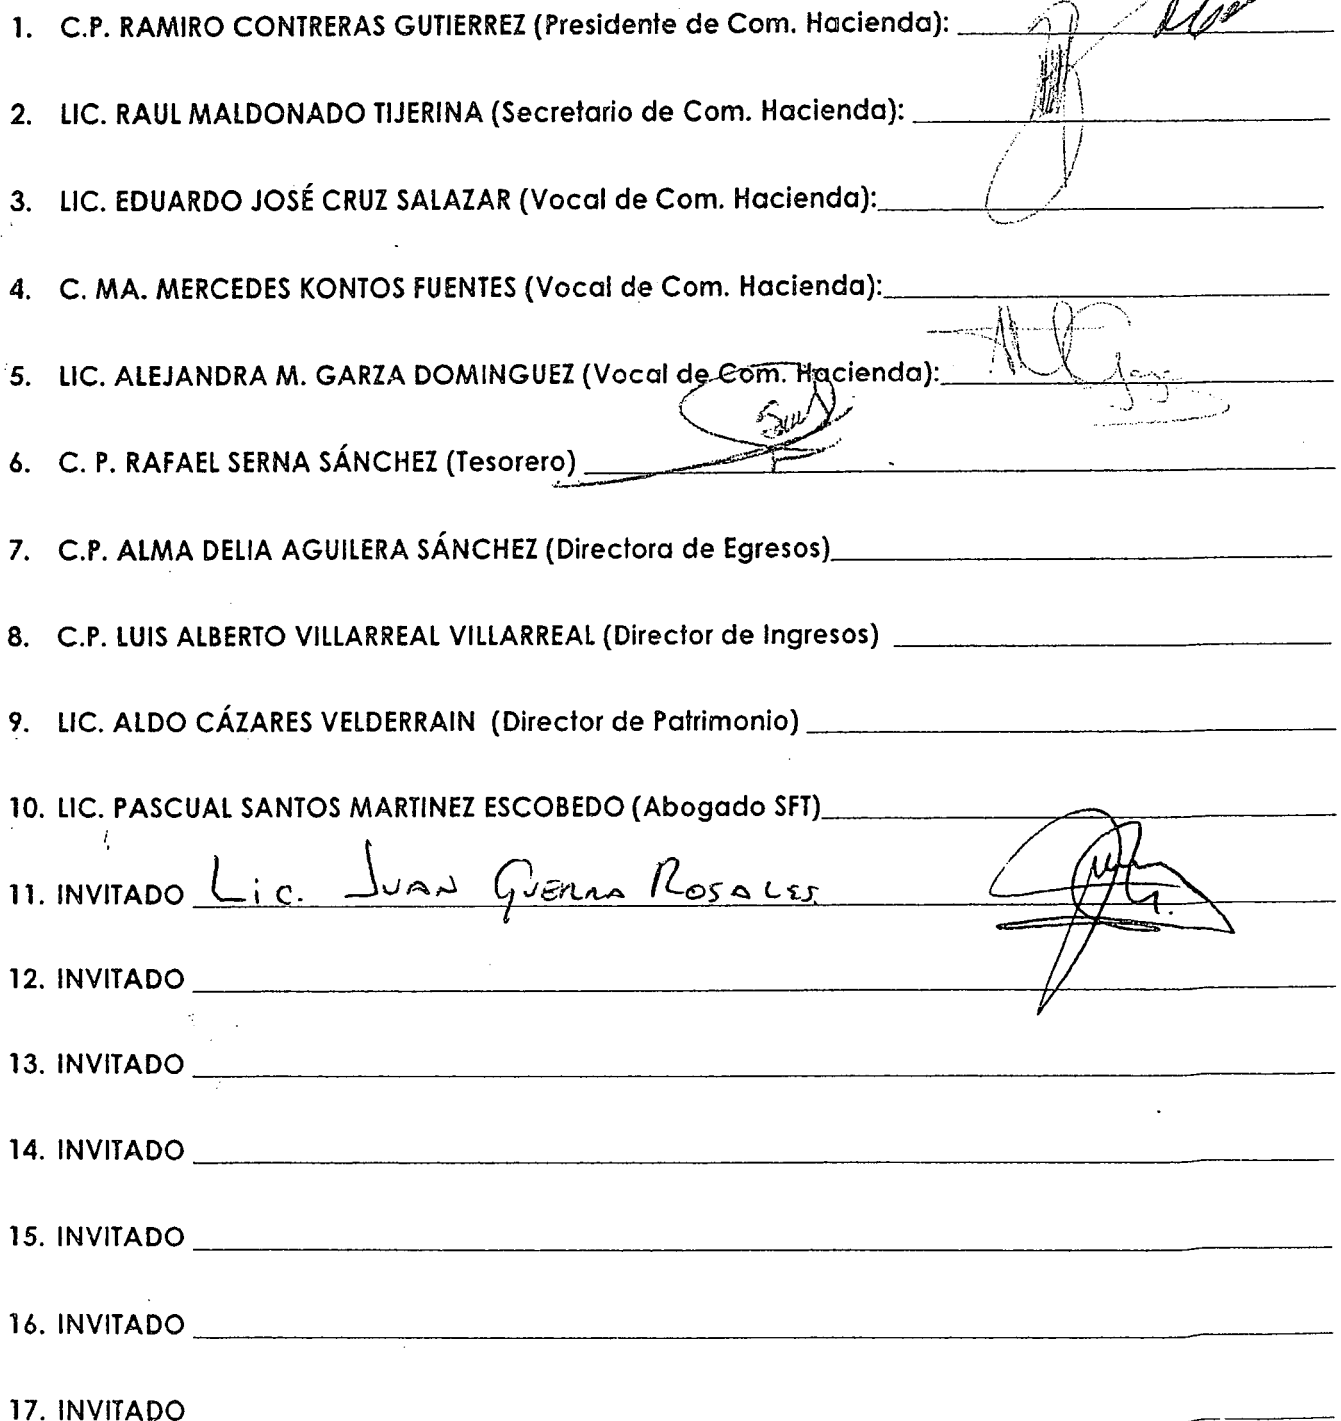 1. C.P. RAMIRO CONTRERAS GUTIERREZ (Presidente de Com. Hacienda):
2. LIC. RAUL MALDONADO TIJERINA (Secretario de Com. Hacienda):
3. LIC. EDUARDO JOSÉ CRUZ SALAZAR (Vocal de Com. Hacienda):
4. C. MA. MERCEDES KONTOS FUENTES (Vocal de Com. Hacienda):
5. LIC. ALEJANDRA M. GARZA DOMINGUEZ (Vocal de Com. Hacienda):
6. C. P. RAFAEL SERNA SÁNCHEZ (Tesorero)
7. C.P. ALMA DELIA AGUILERA SÁNCHEZ (Directora de Egresos)
8. C.P. LUIS ALBERTO VILLARREAL VILLARREAL (Director de Ingresos)
9. LIC. ALDO CÁZARES VELDERRAIN (Director de Patrimonio)
10. LIC. PASCUAL SANTOS MARTINEZ ESCOBEDO (Abogado SFT)
11. INVITADO Lic. JUAN GUERRA ROSALES
12. INVITADO
13. INVITADO
14. INVITADO
15. INVITADO
16. INVITADO
17. INVITADO